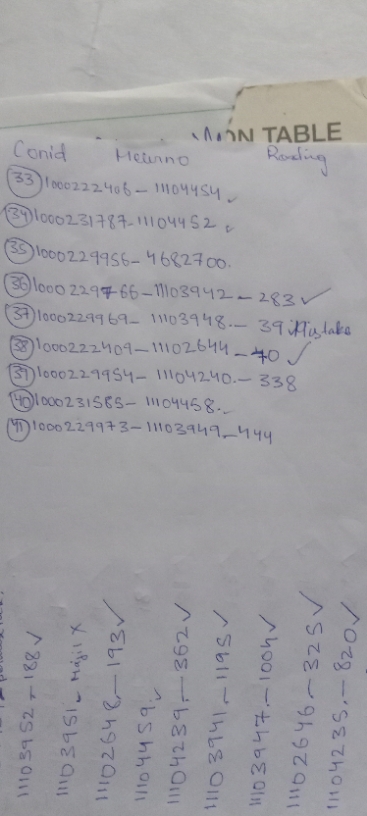 ON TABLE
Conid Meterno Reading
33 1000222406 - 11104454 ✓
34 1000231787 - 11104452 ✓
35 1000229956 - 4682700.
36 1000229766 - 11103942 - 283 ✓
37 1000229969 - 11103948. - 39 Mistake
38 1000222409 - 11102644 - 70 ✓
39 1000229954 - 11104240. - 338
40 1000231585 - 11104458.
41 1000229973 - 11103949 - 444
11103952 - 188 ✓
11103951 - X
11102648. - 193 ✓
11104459. ✓
11104239. - 362 ✓
11103941. - 1195 ✓
11103947. - 1004 ✓
11102646 - 325 ✓
11104235. - 820 ✓